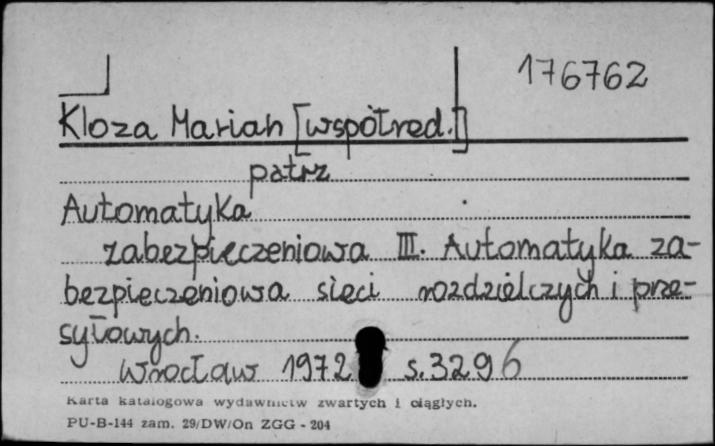 176762
Kloza Marian [współred.]
patrz
Automatyka
zabezpieczeniowa III. Automatyka za-
bezpieczeniowa sieci rozdzielczych i prze-
syłowych.
Wrocław 1972 s. 3296
Karta katalogowa wydawnictw zwartych i ciągłych.
PU-B-144 zam. 29/DW/On ZGG - 204